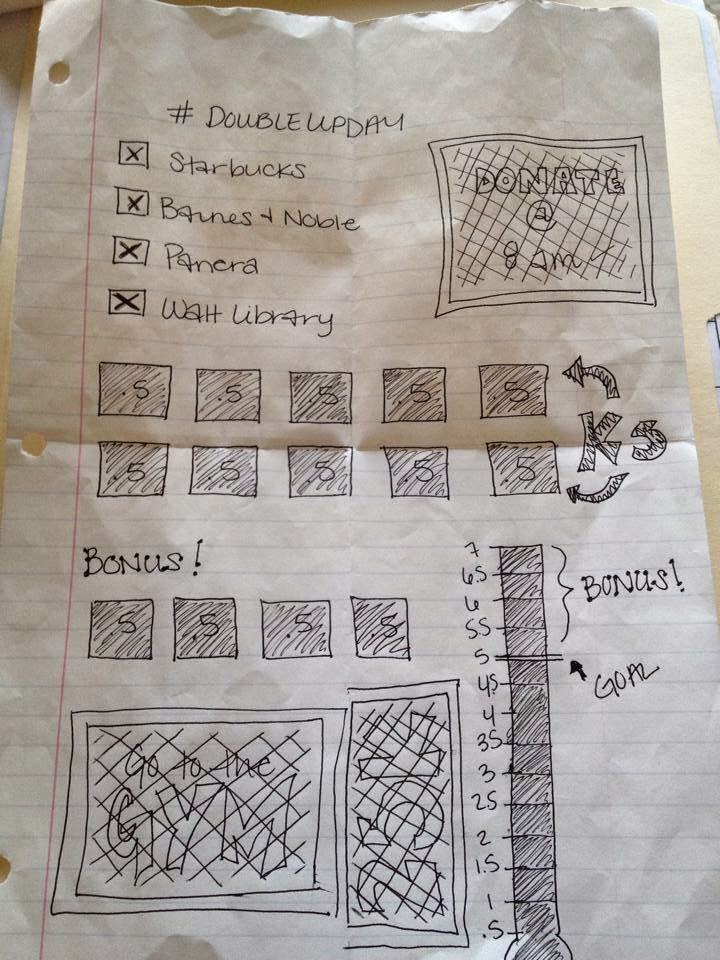 # DOUBLEUPDAY
Starbucks
Barnes + Noble
Panera
Walt Library
DONATE
@
8 am
.5 .5 .5 .5 .5
.5 .5 .5 .5 .5
Ks
BONUS!
.5 .5 .5 .5
7
6.5
6
5.5
5
4.5
4
3.5
3
2.5
2
1.5
1
.5
BONUS!
GOAL
Go to the
GYM